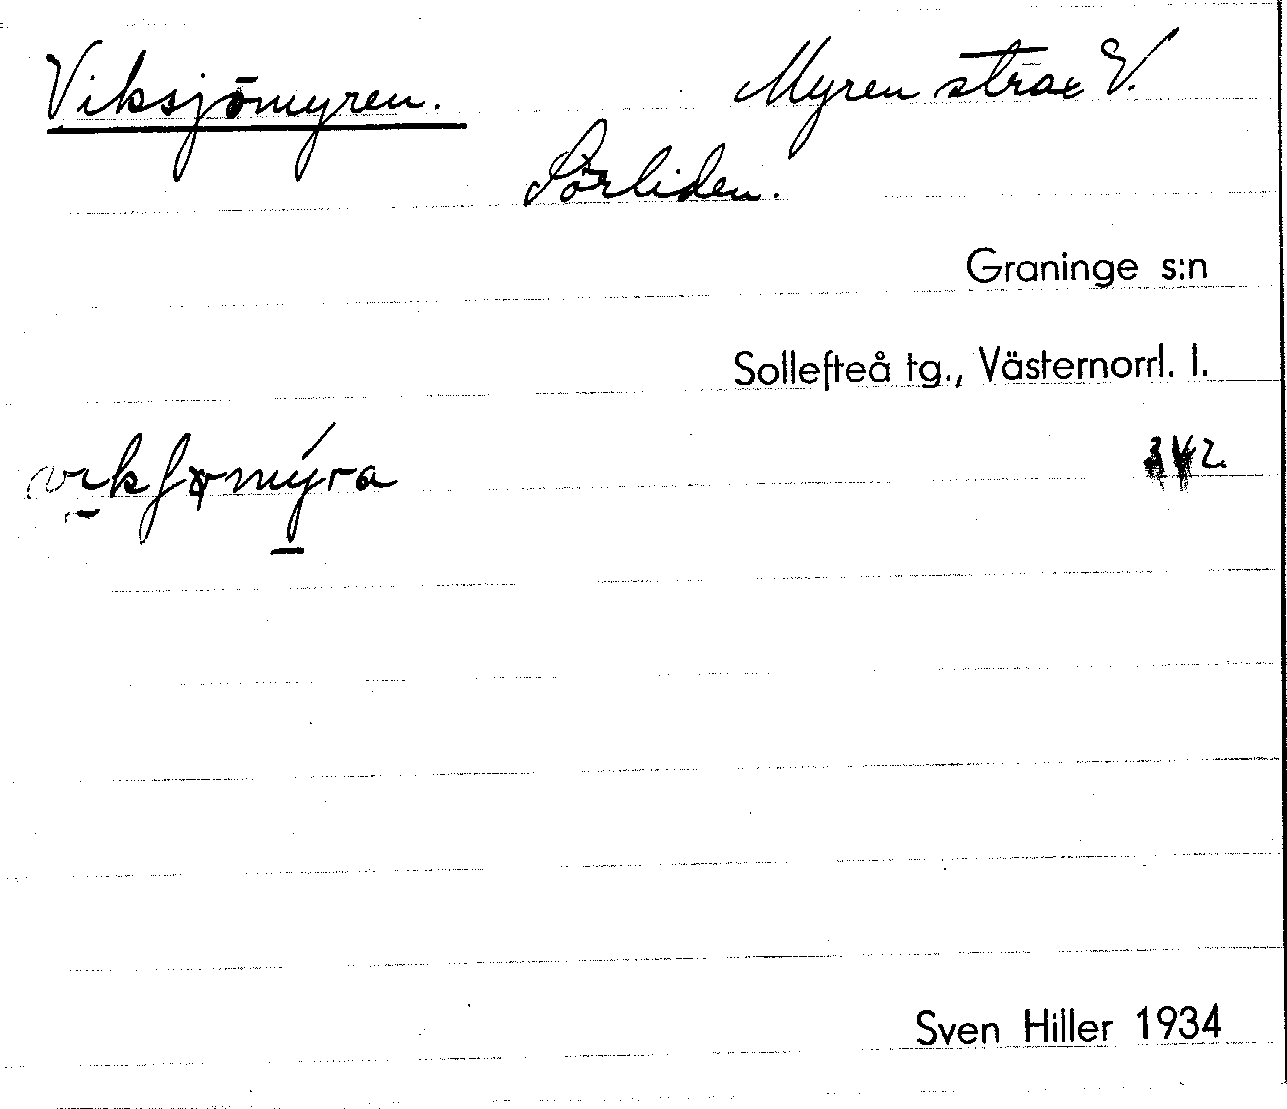 Viksjömyren. Myren strax V.
Sörliden.
Graninge s:n
Sollefteå tg., Västernorrl. l.
vikʃømýra
Sven Hiller 1934